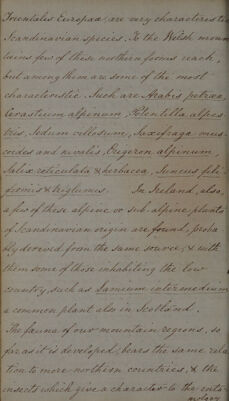 Trientalis Europæa are very characteristic
Scandinavian species. To the Welsh moun
tains few of these northern forms reach,
but among them are some of the most
characteristic. Such are Arabis petræa,
Cerastium alpinum, Potentilla alpes
tris, Sedum villosum, Saxifraga mus
coides and nivalis, Erigeron alpinum,
Salix reticulata & herbacea, Juncus fili
formis & triglumis. In Ireland, also,
a few of these alpine or sub-alpine plants
of Scandinavian origin are found, proba
bly derived from the same source; & with
them some of those inhabiting the low
country, such as Lamium intermedium
a common plant also in Scotland.
The fauna of our mountain regions, so
far as it is developed, bears the same rela
tion to more northern countries, & the
insects which give a character to the ento
mology